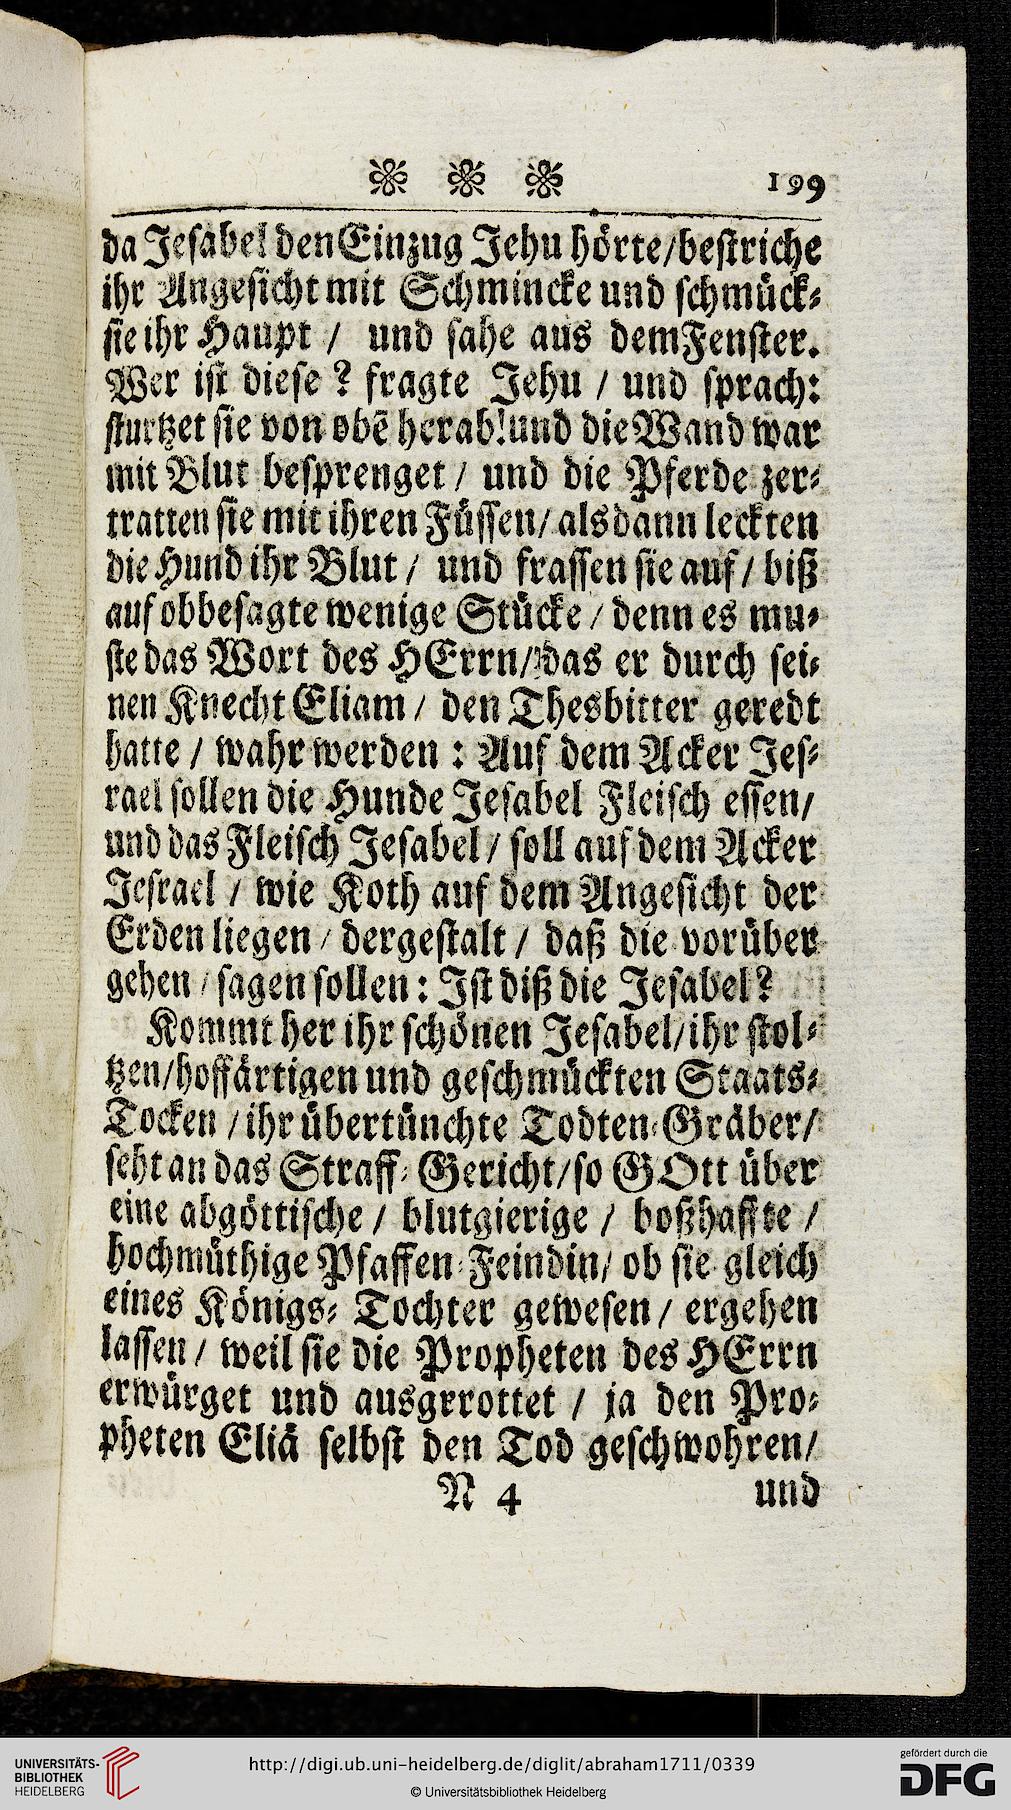 ❊ ❊ ❊ 199
da Jesabel den Einzug Jehu hörte/bestriche
ihr Angesicht mit Schmincke und schmück⸗
sie ihr Haupt / und sahe aus dem Fenster.
Wer ist diese? fragte Jehu / und sprach:
sturtzet sie von obē herab! und die Wand war
mit Blut besprenget / und die Pferde zer⸗
tratten sie mit ihren Füssen/ alsdann leckten
die Hund ihr Blut / und frassen sie auf / biß
auf obbesagte wenige Stücke / denn es mu⸗
ste das Wort des HErrn/ das er durch sei⸗
nen Knecht Eliam / den Thesbitter geredt
hatte / wahr werden : Auf dem Acker Jes⸗
rael sollen die Hunde Jesabel Fleisch essen/
und das Fleisch Jesabel / soll auf dem Acker
Jesrael / wie Koth auf dem Angesicht der
Erden liegen / dergestalt / daß die vorüber
gehen / sagen sollen : Ist diß die Jesabel?
Kommt her ihr schönen Jesabel/ ihr stol⸗
tzen/hoffärtigen und geschmückten Staats⸗
Tocken / ihr übertünchte Todten⸗Gräber/
seht an das Straff⸗Gericht/ so GOtt über
eine abgöttische / blutgierige / boßhaffte /
hochmüthige Pfaffen⸗Feindin/ ob sie gleich
eines Königs⸗ Tochter gewesen / ergehen
lassen / weil sie die Propheten des HErrn
erwürget und ausgrrottet / ja den Pro⸗
pheten Eliä selbst den Tod geschwohren/
N 4 und
UNIVERSITÄTS-
BIBLIOTHEK
HEIDELBERG
http://digi.ub.uni-heidelberg.de/diglit/abraham1711/0339
© Universitätsbibliothek Heidelberg
gefördert durch die
DFG